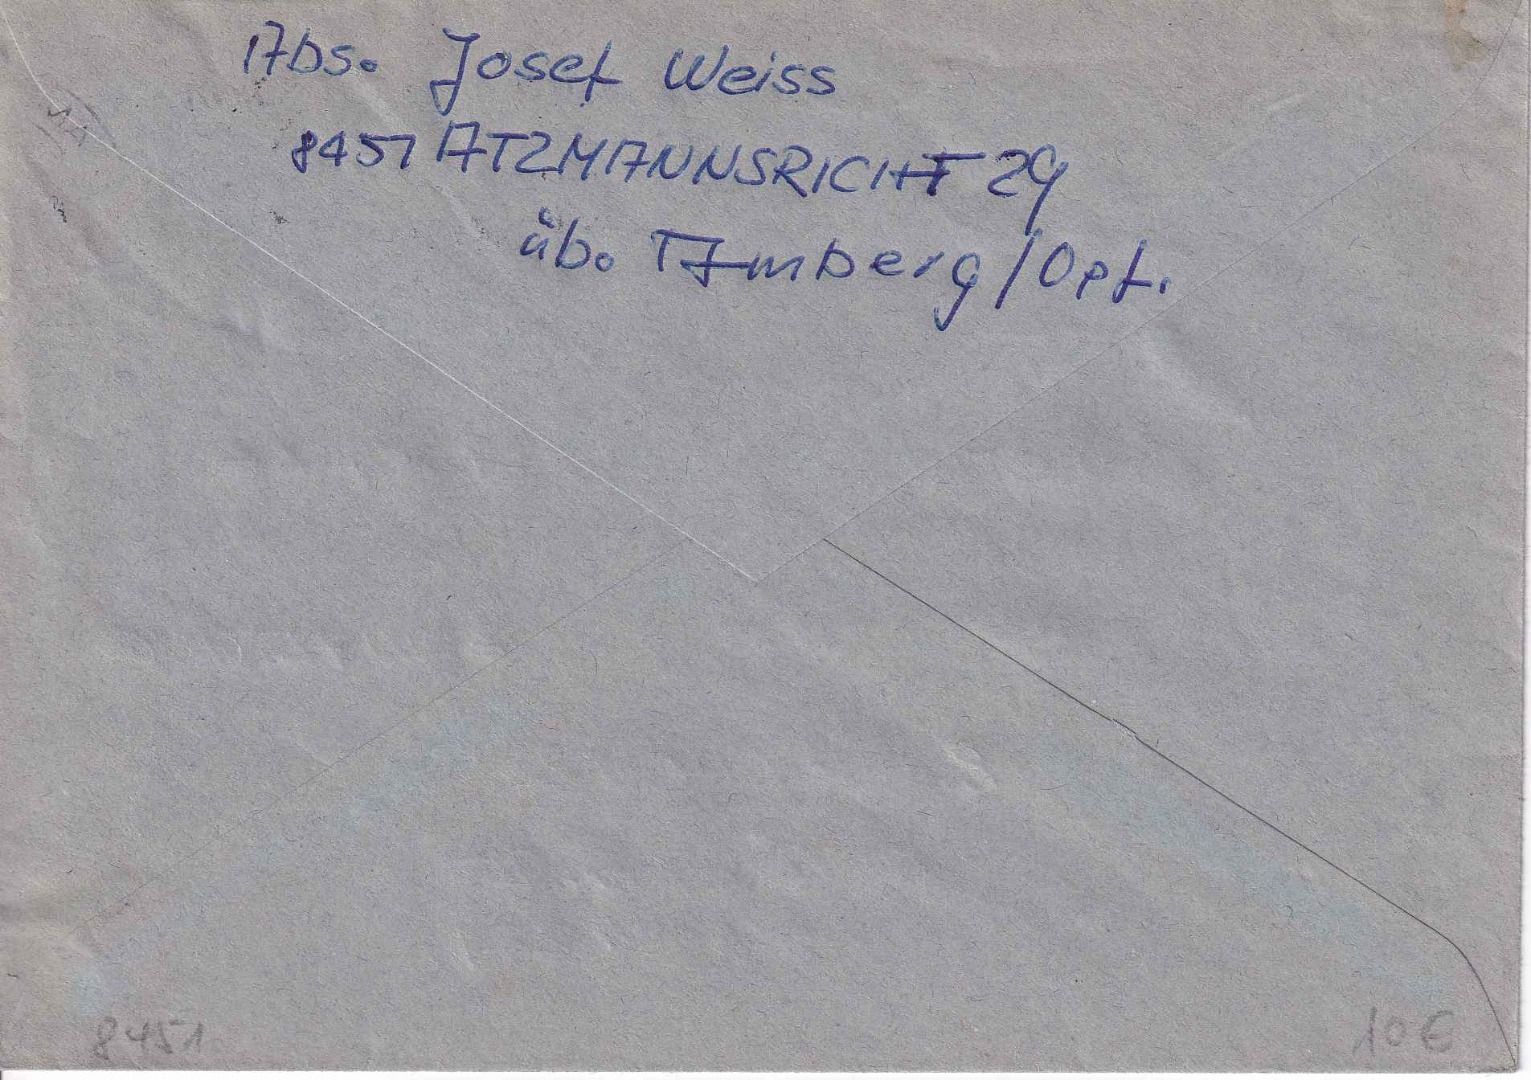 Abs. Josef Weiss
8451 ATZMANNSRICHT 29
üb. Amberg/Opf.
8451
10 €